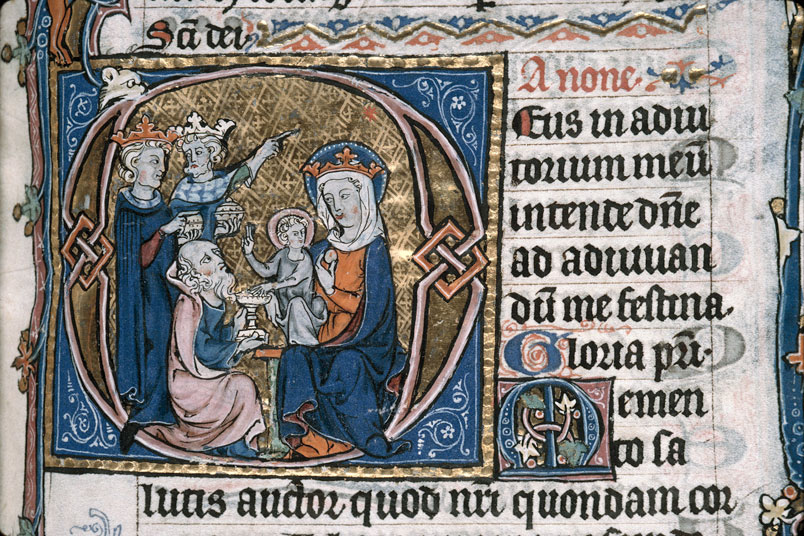 Sc̄a dei
A none.
Eus in adiu
torium meū
intende dn̄e
ad adiuuan
dū me festina.
Gloria pr̄i.
Memen
to sa
lutis auctor quod nr̄i quondam cor